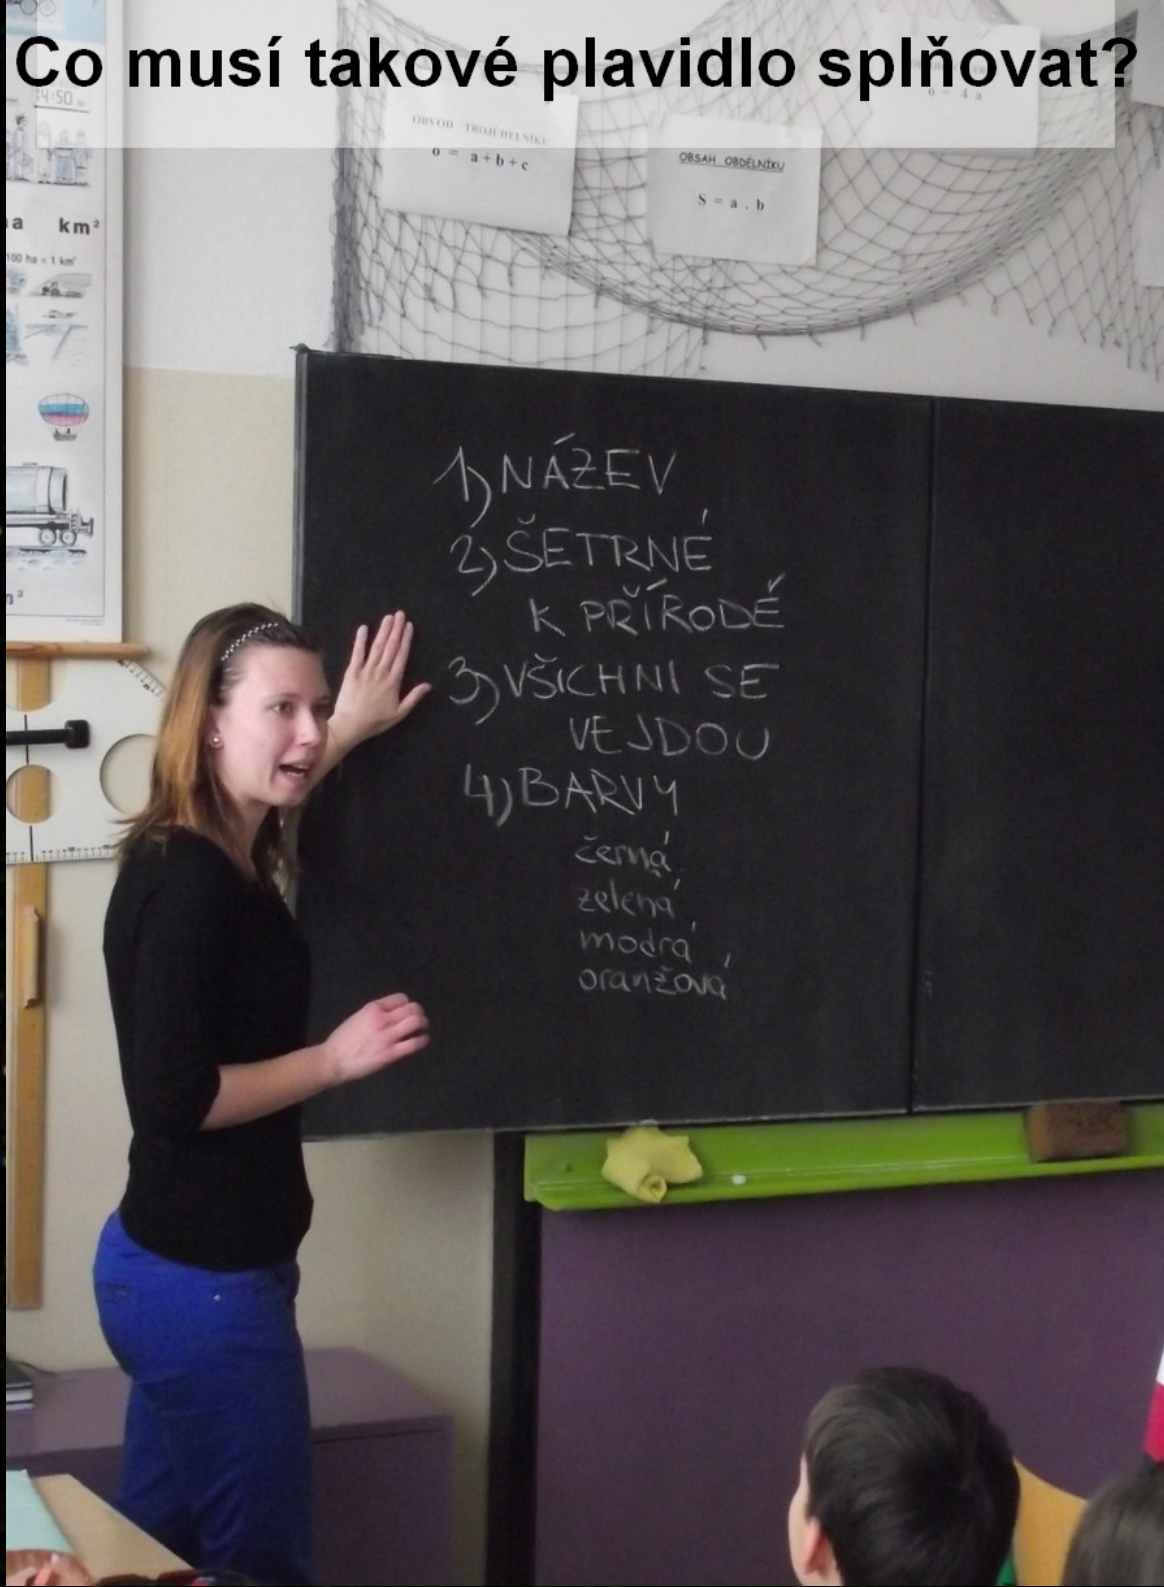 Co musí takové plavidlo splňovat?
34:50
OBVOD TROJÚHELNÍKU
o = a + b + c
OBSAH OBDÉLNÍKU
S = a . b
o = 4 a
ha km²
100 ha = 1 km²
1) NÁZEV
2) ŠETRNÉ
K PŘÍRODĚ
3) VŠICHNI SE
VEJDOU
4) BARVY
černá
zelená
modrá
oranžová